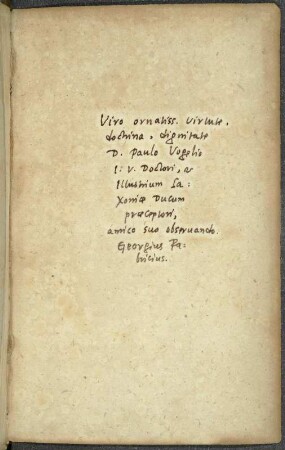 Viro ornatiss. virtute,
doctrina, dignitate
D. Paulo Vogelio
I. V. Doctori, &
Illustrium Sa:
xoniæ Ducum
præceptori,
amico suo observando.
Georgius Fa-
bricius.